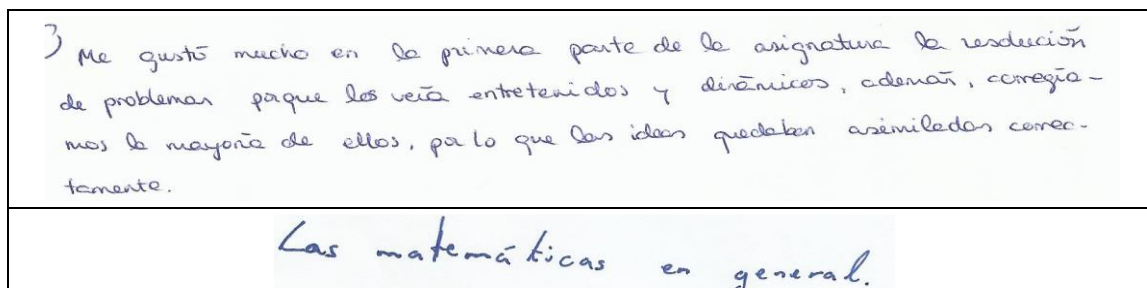 3) Me gustó mucho en la primera parte de la asignatura la resolución
de problemas porque los veía entretenidos y dinámicos, además, corregía-
mos la mayoría de ellos, por lo que las ideas quedaban asimiladas correc-
tamente.
Las matemáticas en general.